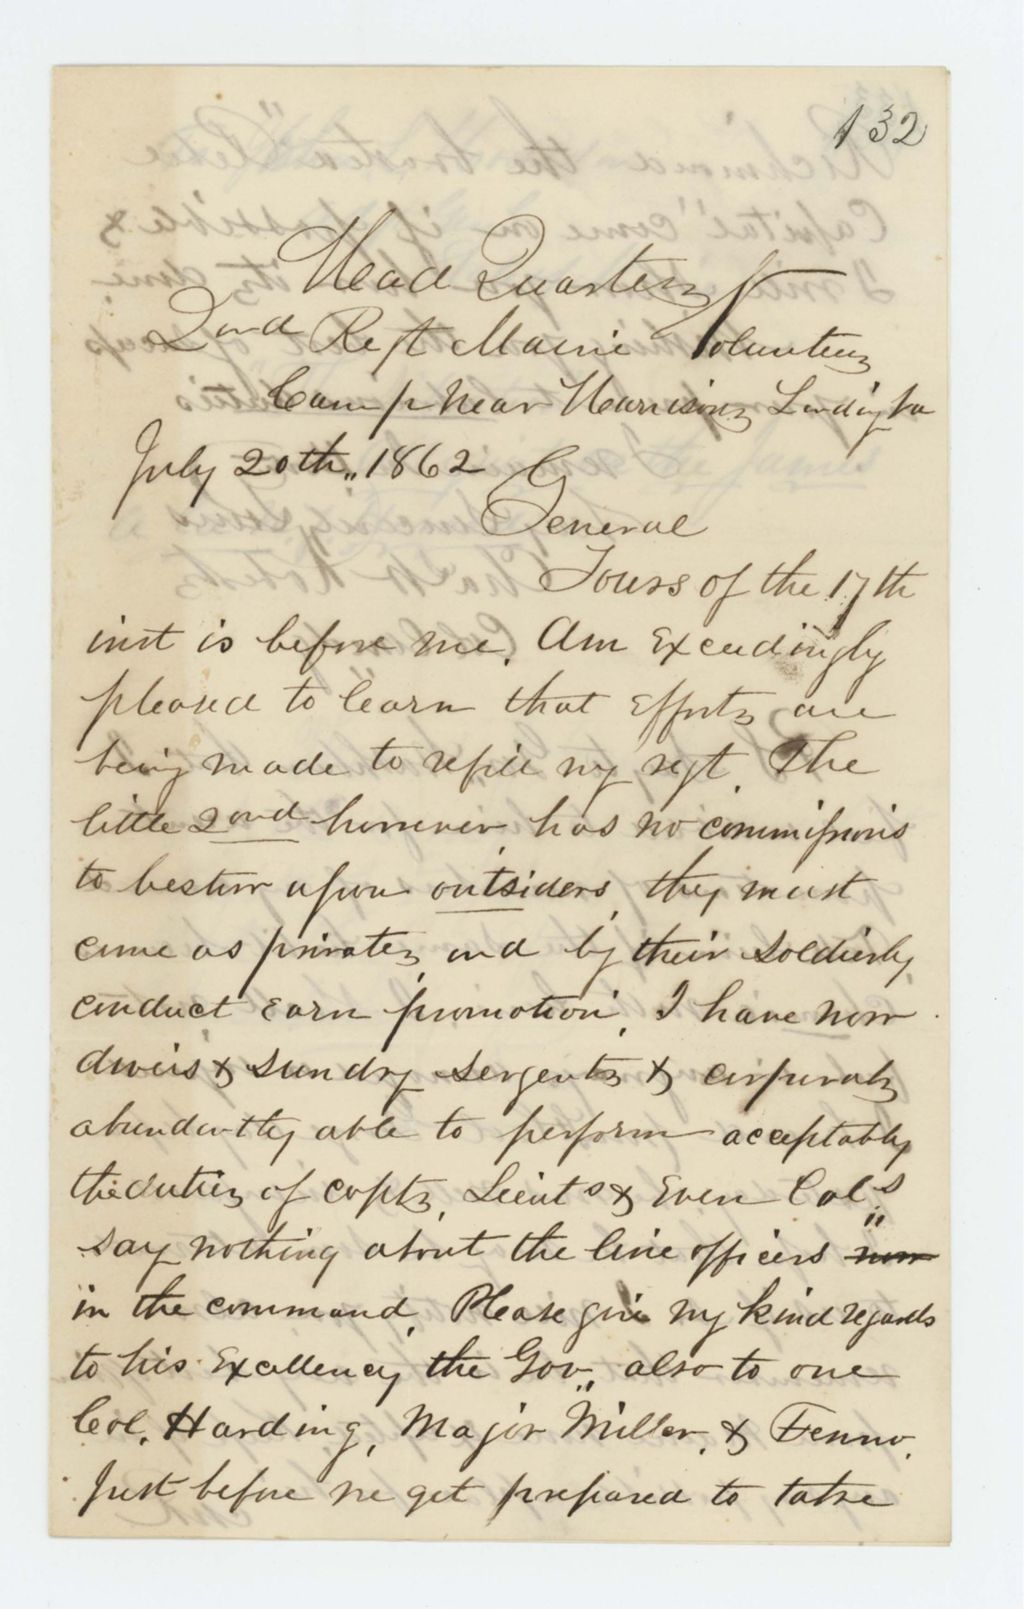 132
Head Quarters
2ond Regt Maine Volunteers
Camp near Harrisons Landing Va
July 20th,, 1862
General
Yours of the 17th
inst is before me. Am Exceedingly
pleased to learn that Efforts are
being made to refill my regt. The
little 2ond however, has no commissions
to bestow upon outsiders, they must
come as privates, and by their soldierly
conduct Earn promotion. I have now
divers & sundry sergents & corporals
abundantly able to perform acceptably
the duties of capts, Lieuts & Even Cols
say nothing about the line officers now
in the command. Please give my kind regards
to his Excellency the Gov, also to one
Col. Harding, Major Miller, & Fenno.
Just before we get prepared to take